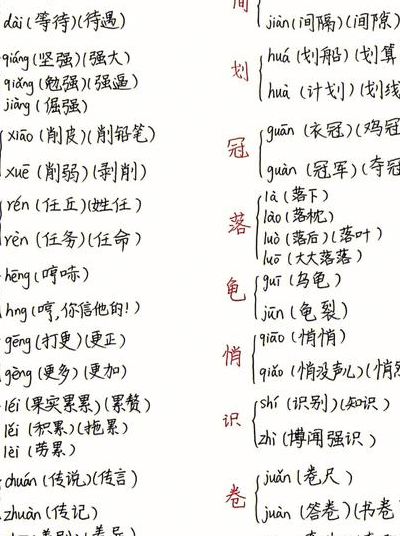 dài (等待)(待遇)
qiáng (坚强)(强大)
qiǎng (勉强)(强逼)
jiàng (倔强)
xiāo (削皮)(削铅笔)
xuē (削弱)(剥削)
rén (任丘)(姓任)
rèn (任务)(任命)
hēng (哼哧)
hng (哼,你信他的!)
gēng (打更)(更正)
gèng (更多)(更加)
léi (果实累累)(累赘)
lěi (积累)(拖累)
lèi (劳累)
chuán (传说)(传言)
zhuàn (传记)
间
jiàn (间隔)(间隙)
划
huá (划船)(划算
huà (计划)(划线
冠
guān (衣冠)(鸡冠
guàn (冠军)(夺冠
落
là (落下)
lào (落枕)
luò (落后)(落叶)
luō (大大落落)
龟
guī (乌龟)
jūn (龟裂)
悄
qiāo (悄悄)
qiǎo (悄没声儿)(悄然
识
shí (识别)(知识)
zhì (博闻强识)
卷
juǎn (卷尺)
juàn (答卷)(书卷